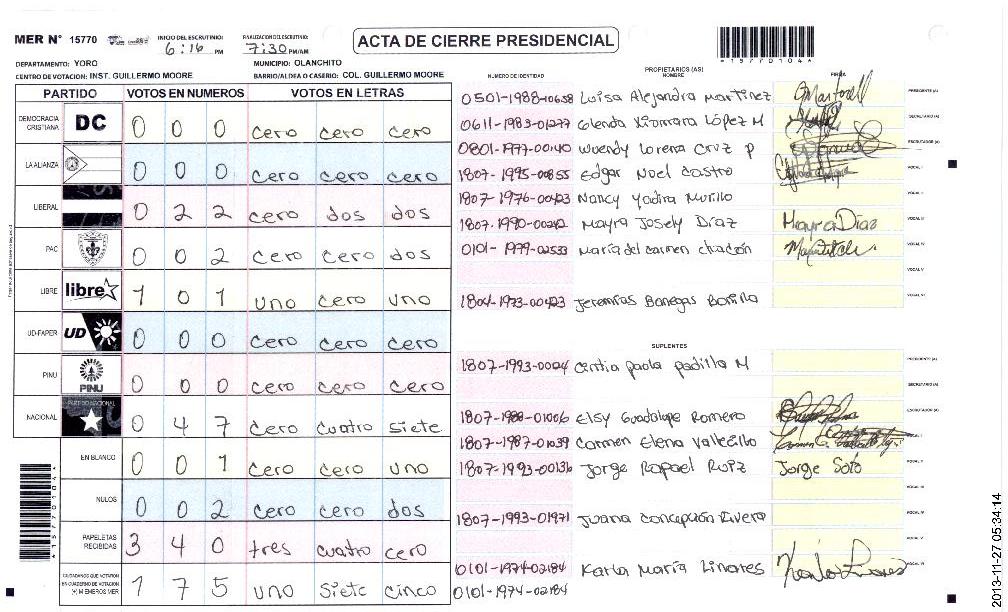 MER N° 15770 INICIO DEL ESCRUTINIO: 6:16 PM FINALIZACION DEL ESCRUTINIO: 7:30 PM/AM
ACTA DE CIERRE PRESIDENCIAL
*1577010 4*
DEPARTAMENTO: YORO MUNICIPIO: OLANCHITO
CENTRO DE VOTACION: INST. GUILLERMO MOORE BARRIO/ALDEA O CASERIO: COL. GUILLERMO MOORE
PARTIDO VOTOS EN NUMEROS VOTOS EN LETRAS
DEMOCRACIA CRISTIANA DC 0 0 0 cero cero cero
LA ALIANZA 0 0 0 cero cero cero
LIBERAL 0 2 2 cero dos dos
PAC 0 0 2 cero cero dos
LIBRE libre 1 0 1 uno cero uno
UD-FAPER UD 0 0 0 cero cero cero
PINU PINU 0 0 0 cero cero cero
NACIONAL 0 4 7 cero cuatro siete
EN BLANCO 0 0 1 cero cero uno
NULOS 0 0 2 cero cero dos
PAPELETAS RECIBIDAS 3 4 0 tres cuatro cero
CIUDADANOS QUE VOTARON EN CUADERNO DE VOTACION (+) MIEMBROS MER 1 7 5 uno siete cinco
NUMERO DE IDENTIDAD PROPIETARIOS (AS) NOMBRE FIRMA
0501-1988-10658 Luisa Alejandra Martinez PRESIDENTE (A)
0611-1983-01277 Glenda Xiomara López M SECRETARIO (A)
0801-1977-00140 Wuendy Lorena Cruz P ESCRUTADOR (A)
1807-1995-00855 Edgar Noel Castro VOCAL I
1807-1976-00423 Nancy Yadira Murillo VOCAL II
1807-1990-00242 Mayra Josely Díaz Mayra Díaz VOCAL III
0101-1979-02533 María del carmen chacón VOCAL IV
VOCAL V
1804-1973-00423 Jeremías Banegas Bonilla VOCAL VI
SUPLENTES
1807-1993-00024 Cintia paola padilla M PRESIDENTE (A)
SECRETARIO (A)
1807-1988-01006 Elsy Guadalupe Romero ESCRUTADOR (A)
1807-1987-01039 Carmen Elena Vallecillo VOCAL I
1807-1993-00136 Jorge Rafael Ruiz Jorge Soto VOCAL II
VOCAL III
1807-1993-01971 Juana Concepción Rivera VOCAL IV
VOCAL V
0101-1974-02184 Karla María Linares VOCAL VI
0101-1974-02184
2013-11-27 05:34:14